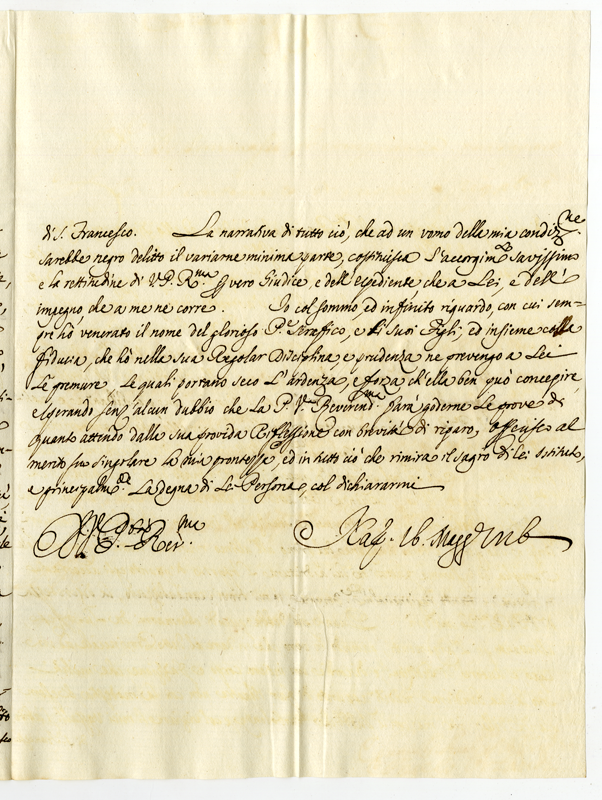 di S. Francesco. La narrativa di tutto ciò, che ad un vomo della mia condiz.ne
sarebbe negro delitto il variarne minima parte, costituisca l'accorgim.to savissimo
e la rettitudine di V. P. R.ma vero Giudice, e dell'espediente che a Lei, e dell'
impegno che a me ne corre. Io col sommo, ed infinito riguardo, con cui sem-
pre hò venerato il nome del glorioso P.e Seraffico, e di Suoi Figli, ed insieme colla
fiducia, che hò nella sua Regolar Disciplina e prudenza ne prevengo a Lei
le premure, le quali portano seco l'ardenza, e forza ch'ella ben può concepire,
e sperando senz'alcun dubbio che la P. V.a Reverend.ma farà goderne le prove di
quanto attendo dalla sua provida Riflessione con brevità di riparo, offerisco al
merito suo singolare la mia prontezza, ed in tutto ciò che rimira il sagro di lei Istituto,
e principalm.te la degna di Lei Persona, col dichiararmi
Di V. P. Rev.ma
16. Magg.o